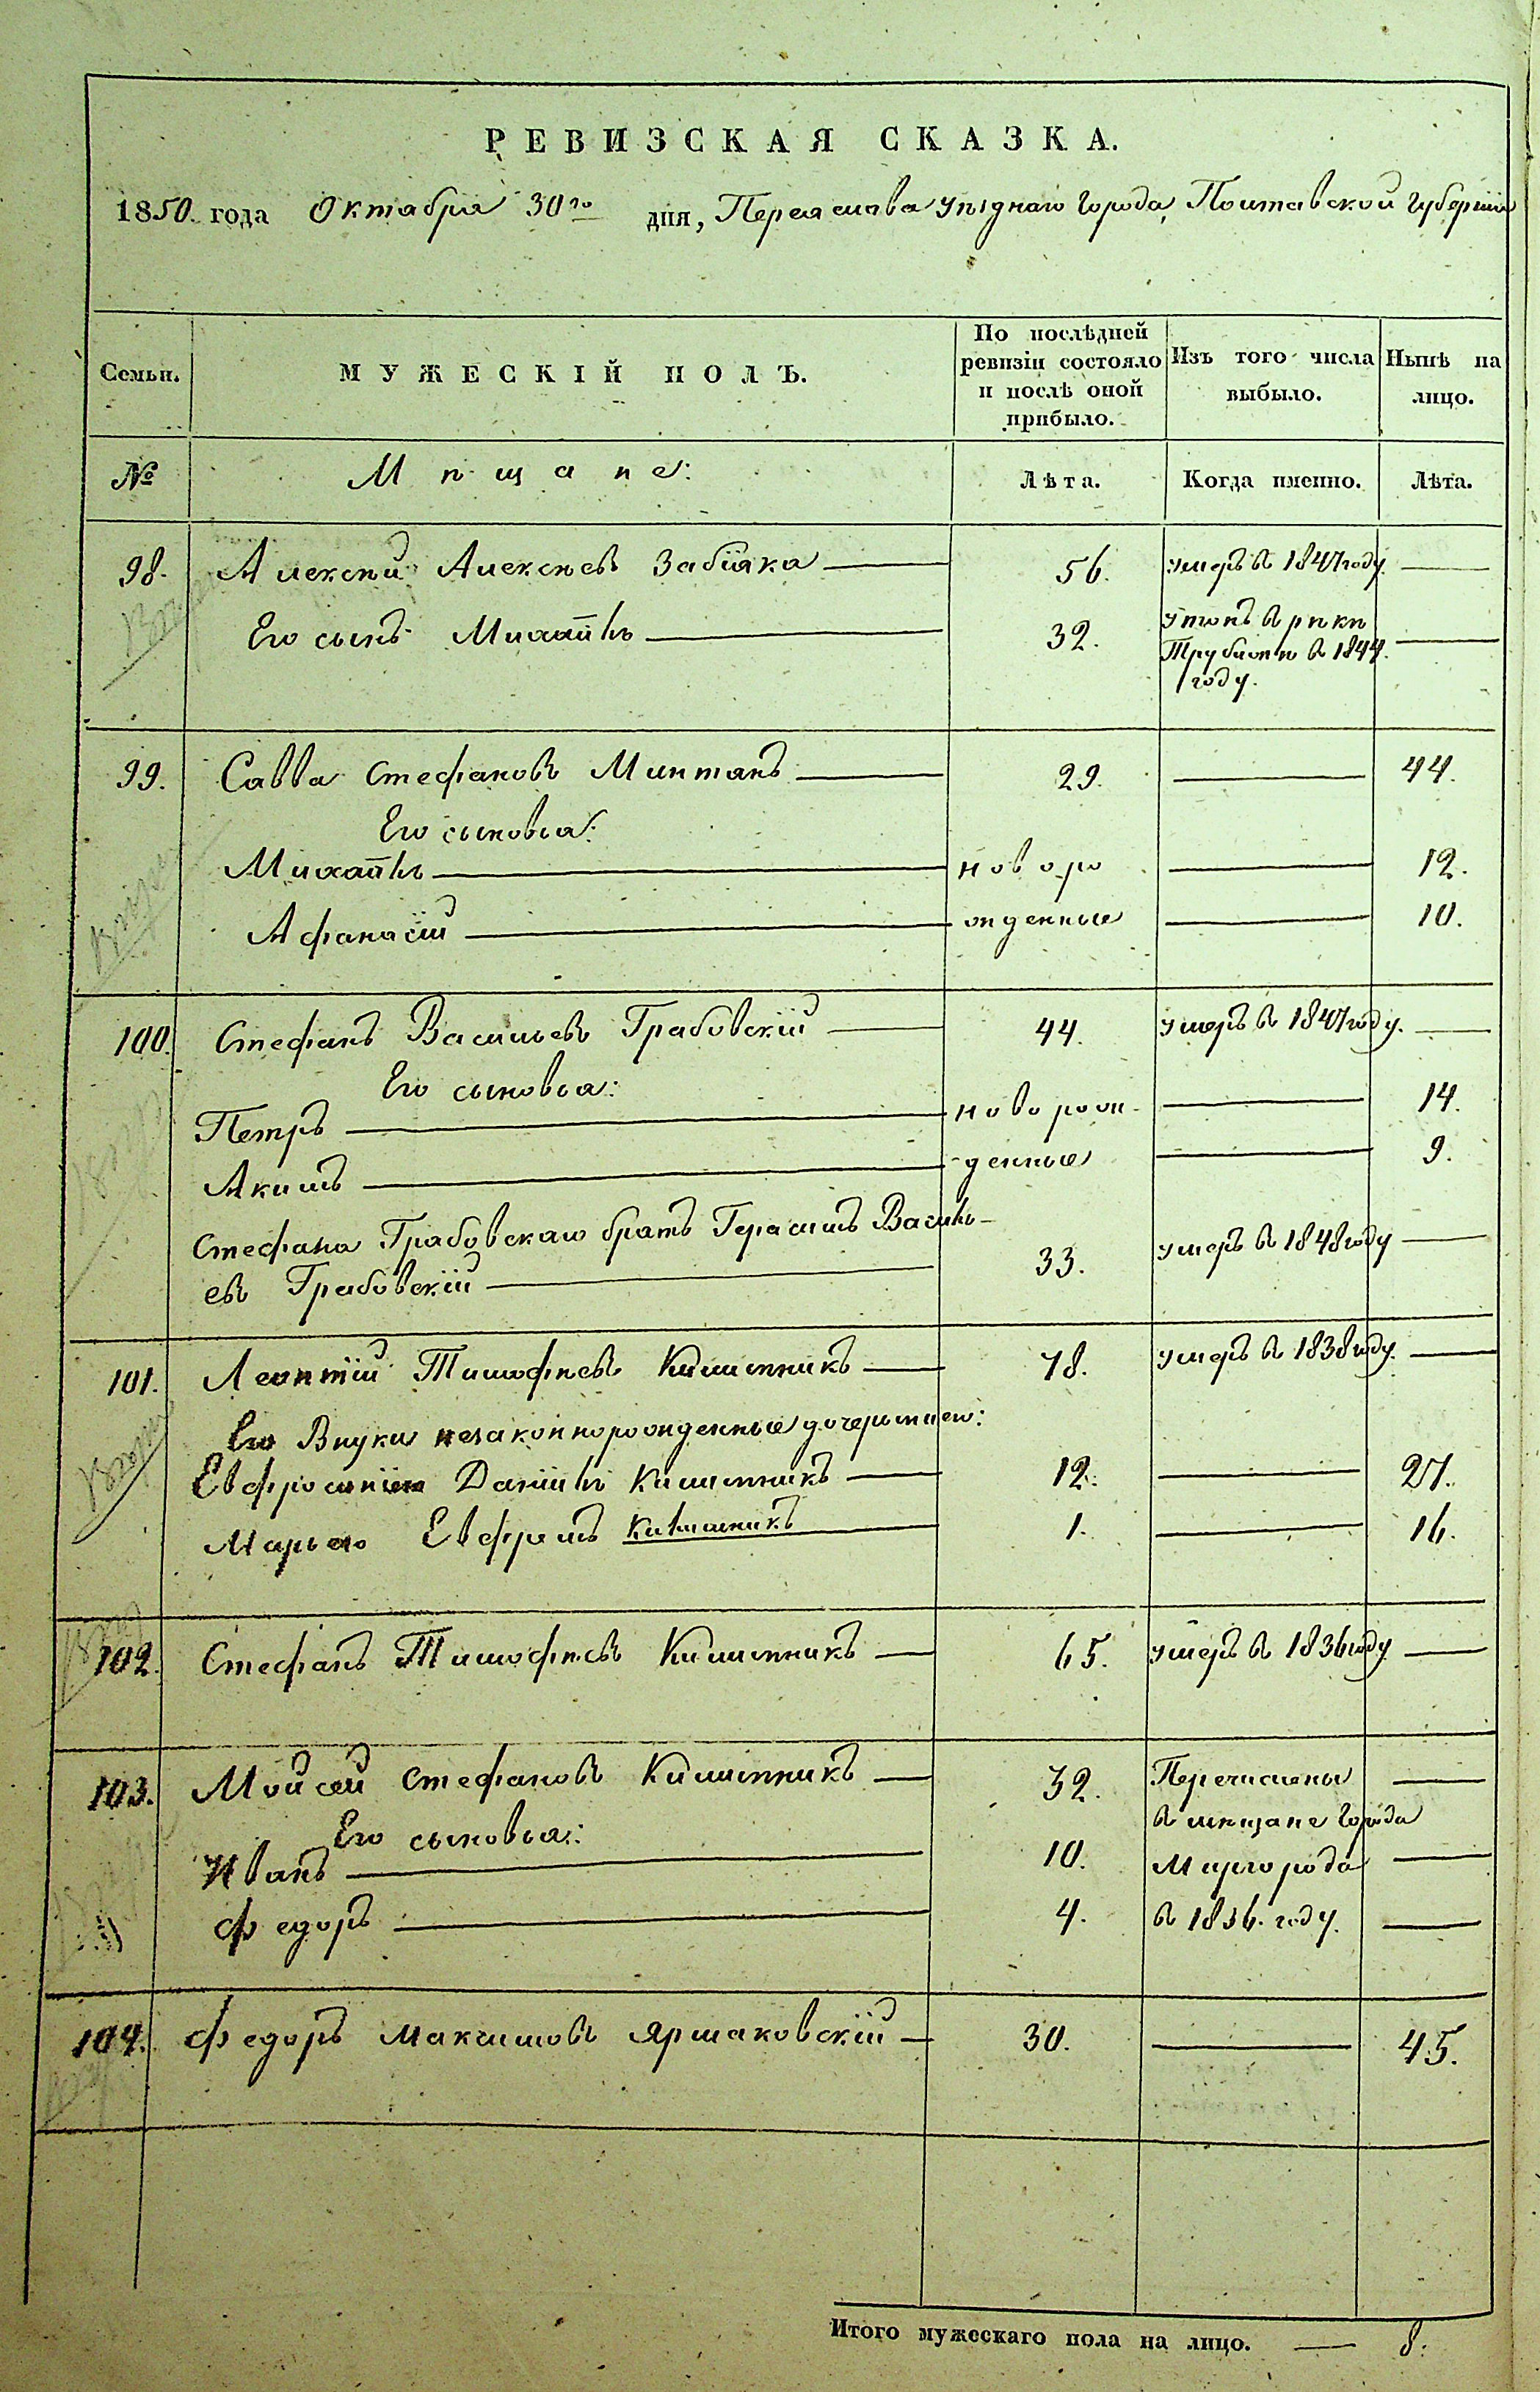 РЕВИЗСКАЯ СКАЗКА.
1850. года Октября 30го дня, Переяслава уѣзднаго города, Полтавской губерніи
Семьи. МУЖЕСКІЙ ПОЛЪ. По послѣдней ревизіи состояло и послѣ оной прибыло. Изъ того числа выбыло. Нынѣ на лицо.
№ Мѣщане: Лѣта. Когда именно. Лѣта.
98. Алексѣй Алексѣевъ Забіяка — 56. умеръ въ 1847 году. —
Его сынъ Михаилъ — 32. утопъ въ рѣкѣ Трубежѣ въ 1844. году. —
99. Савва Стефановъ Минтянъ — 29. — 44.
Его сыновья:
Михаилъ — новоро — 12.
Афанасій — жденные — 10.
100. Стефанъ Васильевъ Грабовскій — 44. умеръ въ 1847 году. —
Его сыновья:
Петръ — новорож- — 14.
Акимъ — -денные — 9.
Стефана Грабовскаго братъ Герасимъ Василь-
евъ Грабовскій — 33. умеръ въ 1848 году —
101. Леонтій Тимофѣевъ Килимникъ — 78. умеръ въ 1838 году. —
Его Внуки незаконнорожденные дочерьми его:
Евфросиніею Даніилъ Килимникъ — 12. — 27.
Марьею Евфремъ Килимникъ 1. — 16.
102. Стефанъ Тимофѣевъ Килимникъ — 65. умеръ въ 1836 году —
103. Мойсей Стефановъ Килимникъ — 32. Перечислены —
Его сыновья: въ мѣщане города
Иванъ — 10. Миргорода —
Федоръ — 4. въ 1836. году. —
104. Федоръ Максимовъ Ярмаковскій — 30. — 45.
Итого мужескаго пола на лицо. — 8.